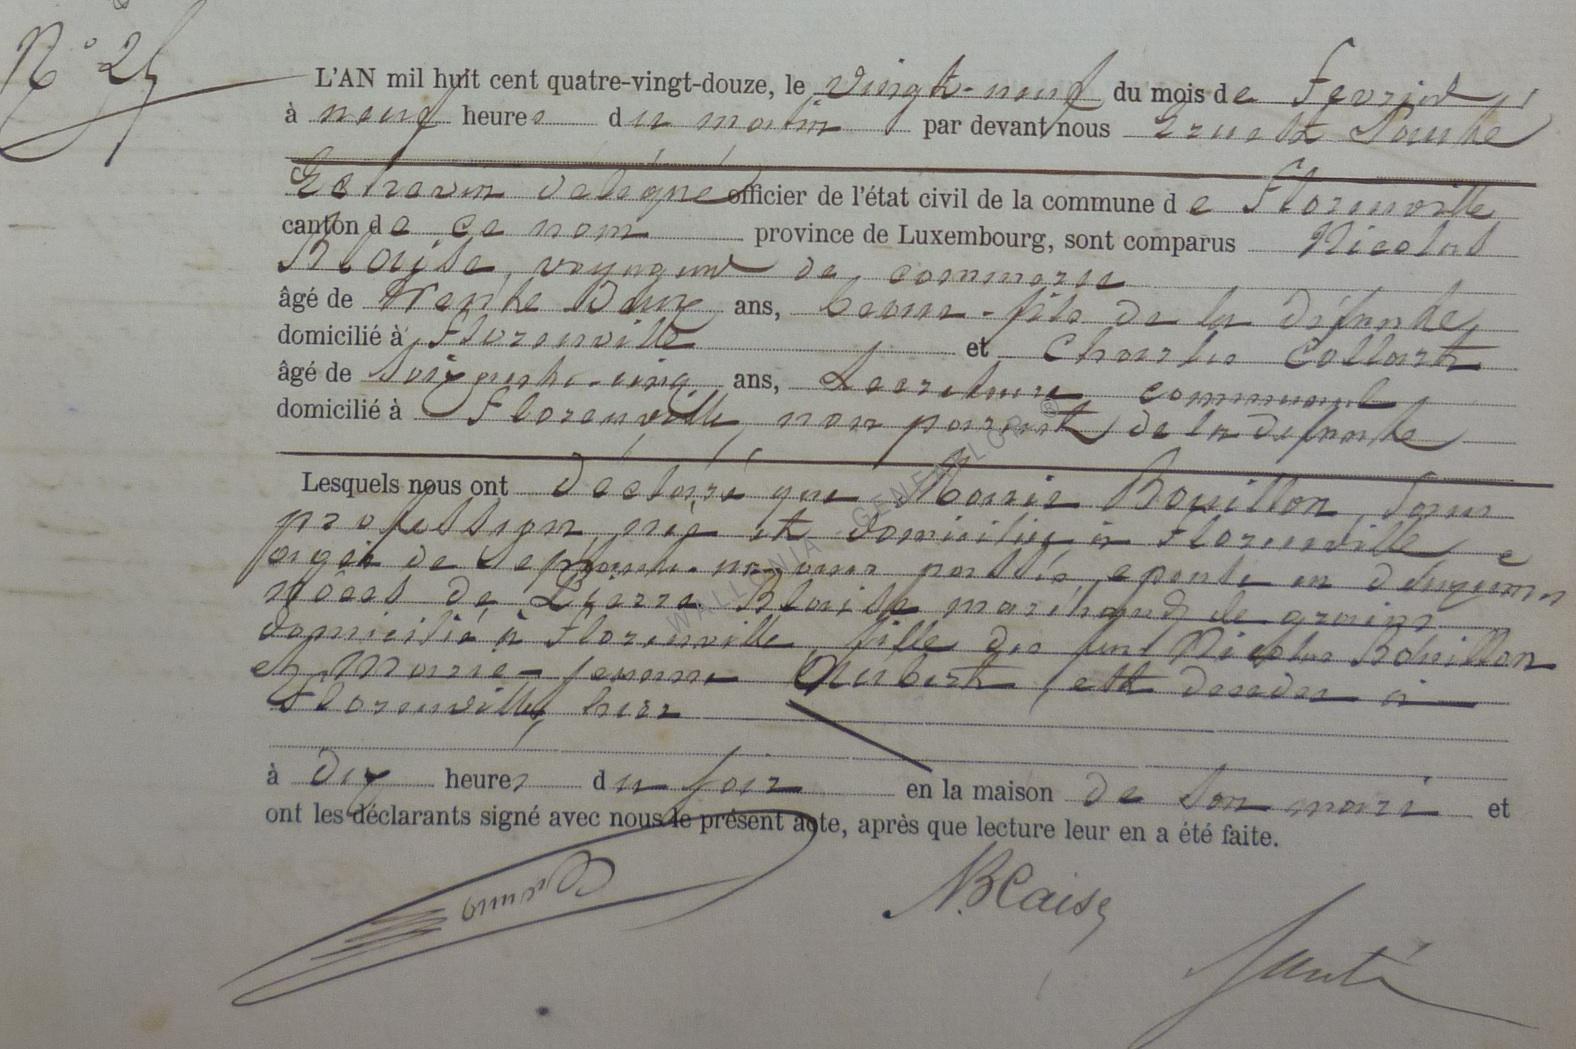 N° 25
L'AN mil huit cent quatre-vingt-douze, le vingt-neuf du mois de Février,
à neuf heures du matin par devant nous Ernest Santé
Echevin délégué officier de l'état civil de la commune de Florenville
canton de ce nom province de Luxembourg, sont comparus Nicolas
Blaise, voyageur de commerce
âgé de trente deux ans, beau-fils de la défunte,
domicilié à Florenville et Charles Collart
âgé de soixante-cinq ans, Secrétaire communal,
domicilié à Florenville, non parent de la défunte
Lesquels nous ont déclaré que Marie Bouillon sans
profession, née et domiciliée à Florenville
âgée de septante- ans passés, épouse en deuxièmes
nôces de Pierre Blaise marchand de grains
domicilié à Florenville fille de feu Nicolas Bouillon
et Marie-Jeanne Hubert, est décédée à
Florenville, hier
à dix heures du soir en la maison de son mari et
ont les déclarants signé avec nous le présent acte, après que lecture leur en a été faite.
N. Blaise
Santé
WALLONIA GENEAFLOR ©